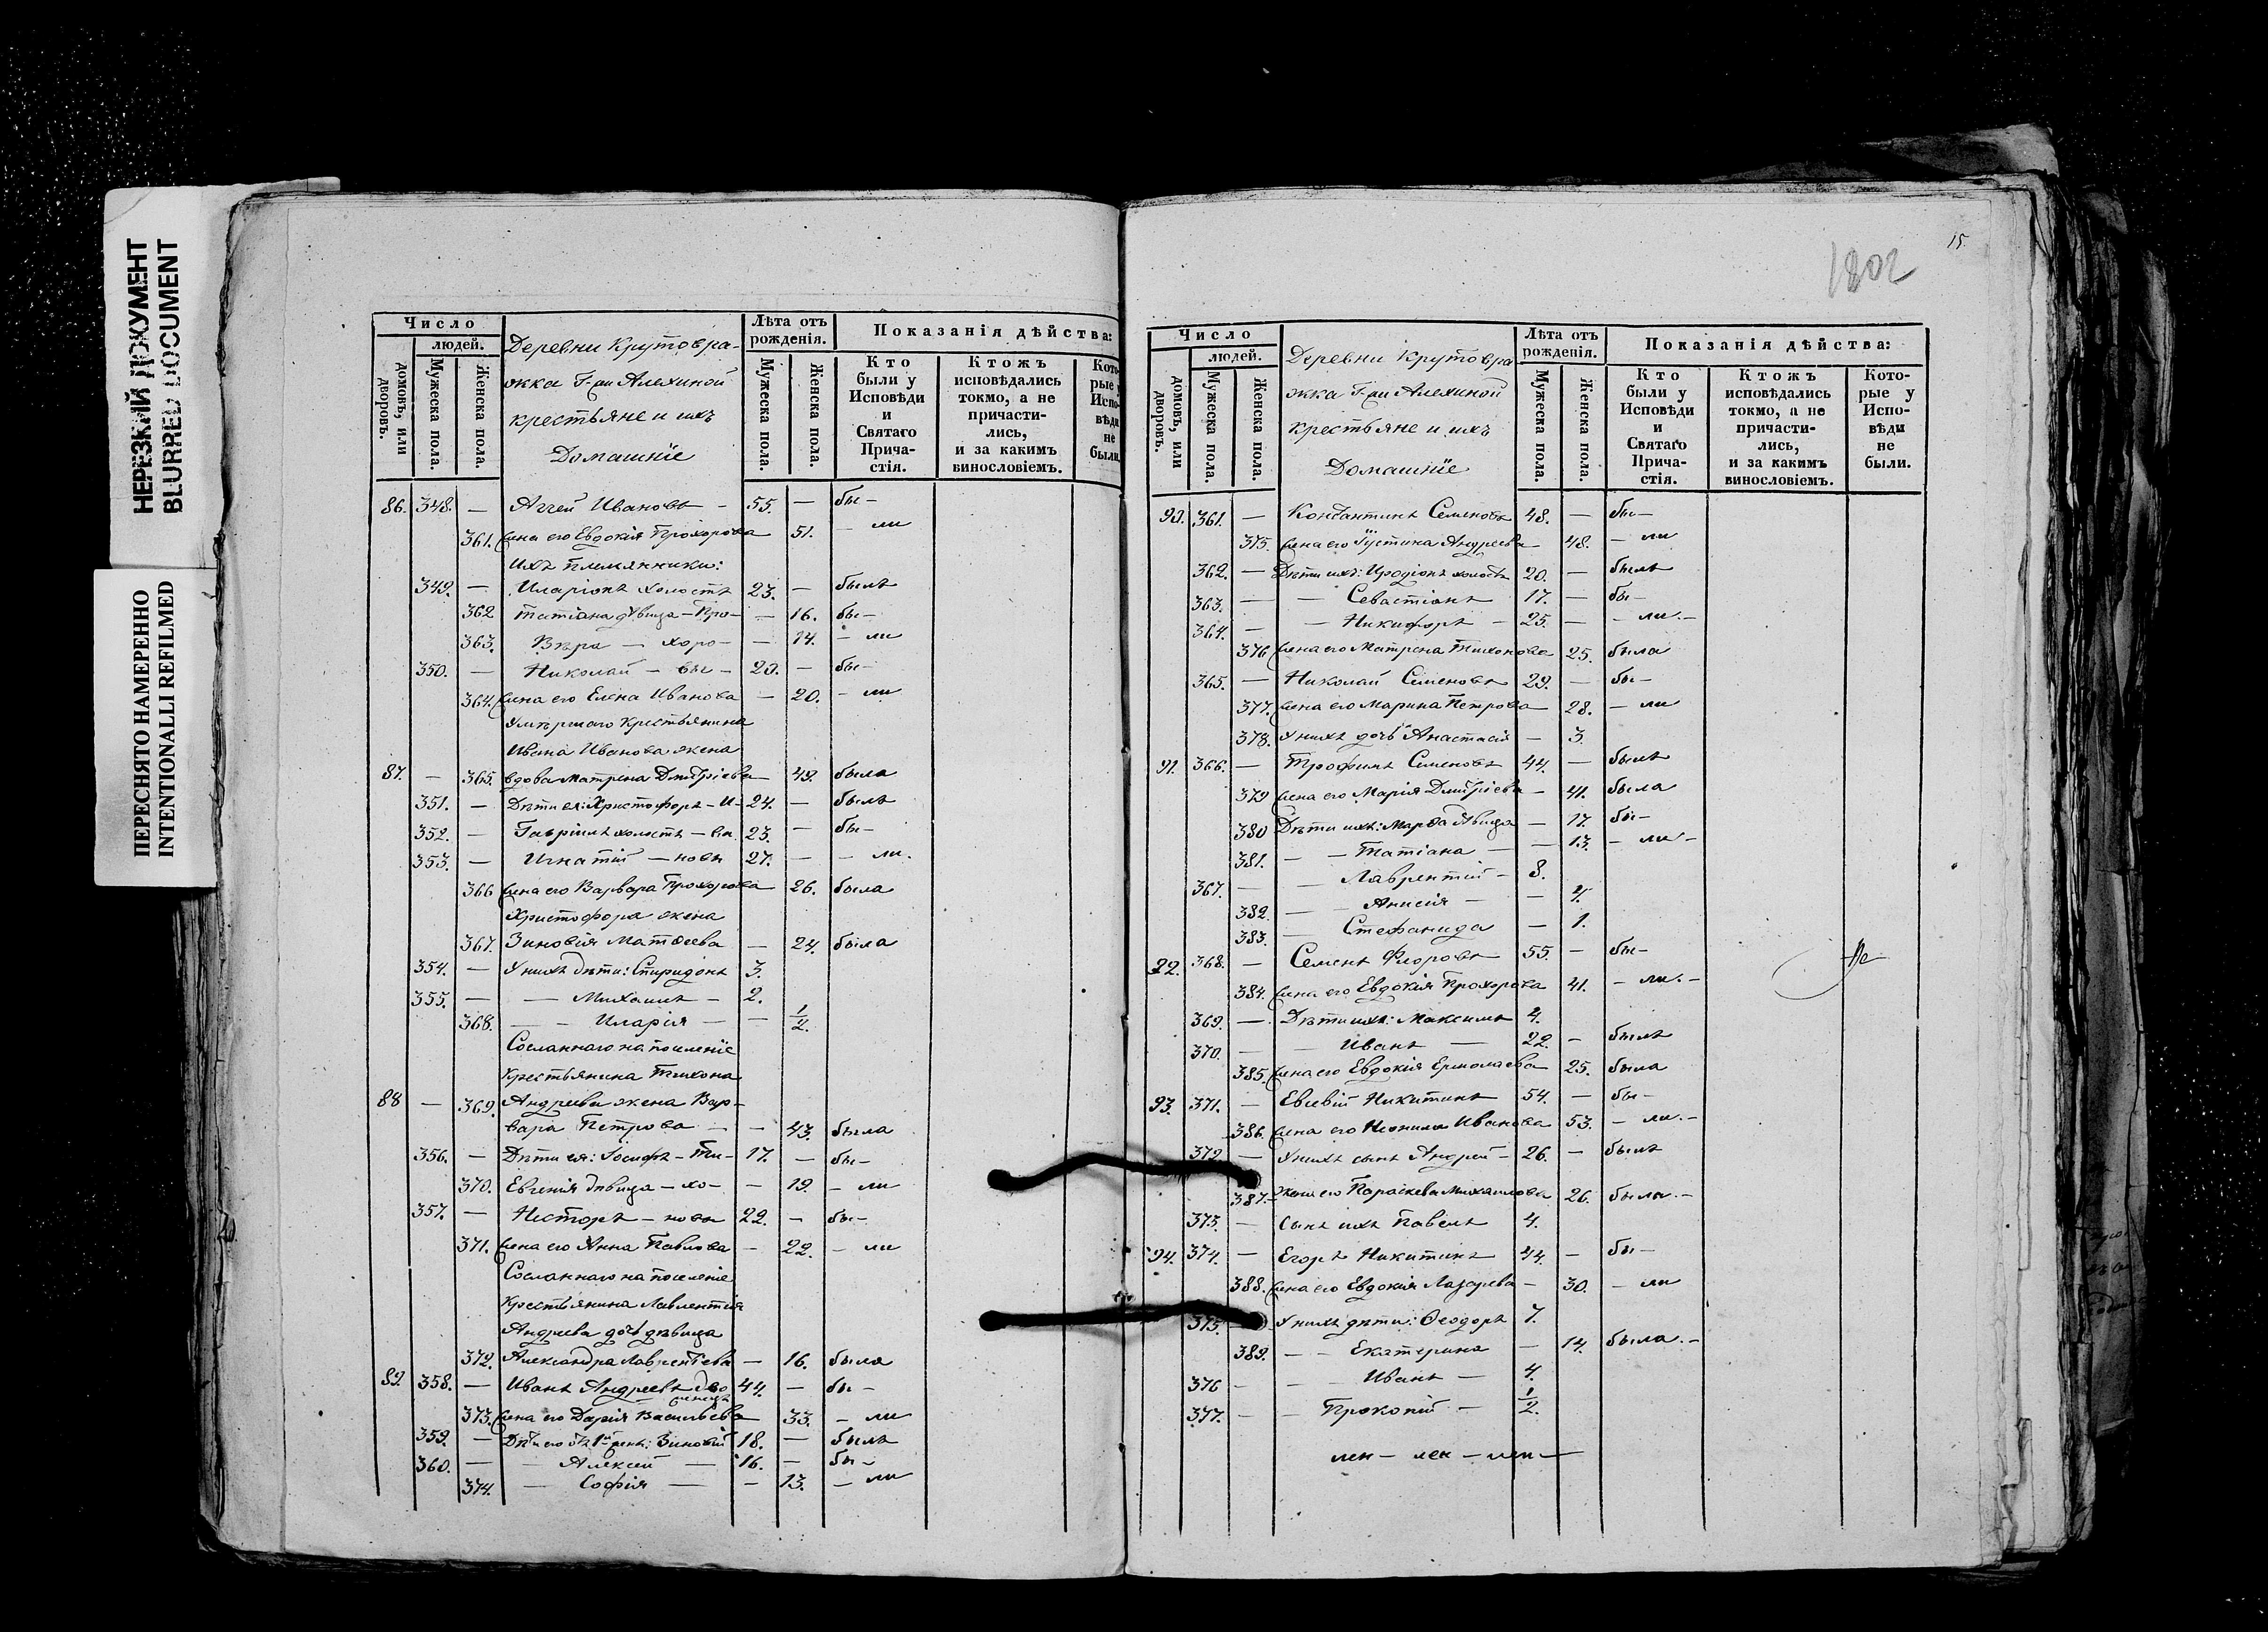 НЕРЕЗКИЙ ДОКУМЕНТ
BLURRED DOCUMENT
ПЕРЕСНЯТО НАМЕРЕННО
INTENTIONALLI REFILMED
Число
людей.
домовъ, или дворовъ.
Мужеска пола.
Женска пола.
Деревни Крутовра-
жка Г-жи Алехиной
крестьяне и ихъ
Домашніе
Лѣта отъ рожденія.
Мужеска пола.
Женска пола.
Показанія дѣйства:
Кто были у Исповѣди и Святаго Прича-стія.
Ктожъ исповѣдались токмо, а не причасти-лись, и за какимъ винословіемъ.
Кото-рые Испо-вѣди не были.
86. 348. — Аггей Ивановъ — 55. — бы—
361. жена его Евдокія Прохорова 51. — ли
Ихъ племянники:
349. — Иларіонъ холостъ 23. — былъ
362 Татіана дѣвица — Про— — 16. бы—
363. Вѣра — хоро— — 14. — ли
350. — Николай — вы — 20. — бы—
364. жена его Елена Иванова — 20. — ли
Умершаго Крестьянина
Ивана Иванова жена
87. — 365. вдова Матрена Дмитріева 49. была
351. — Дѣти ея: Христофоръ — И— 24. — былъ
352. — Гавріилъ холостъ — ва 23. — бы—
353. — Игнатій — новы 27. — — ли.
366 жена его Варвара Прохорова 26. была
Христофора жена
367. Зиновія Матѳеева — 24. была
354. — У нихъ дѣти: Спиридонъ 3.
355. — — Михаилъ — 2.
368. — — Иларія — — 1/2.
Сосланнаго на поселеніе
Крестьянина Тихона
88 — 369. Андреева жена Вар-
вара Петрова — — 43. была
356. — Дѣти ея: Іосифъ — Ти— 17. — бы—
370. Евгенія дѣвица — хо— — 19. — ли
357. — Несторъ — новы 22. — бы—
371. жена его Анна Павлова — 22. — ли
Сосланнаго на поселеніе
Крестьянина Лаврентія
Андреева дочь дѣвица
372. Александра Лаврентіева — 16. была
89. 358. — Иванъ Андреевъ 44. — бы—
373. жена его Дарія Васильева 33. — ли
359. — Зиновій 18. — былъ
360. — — Алексій — 16. — бы—
374. — Софія — — 13. — ли
1802
15.
Число
людей.
домовъ, или дворовъ.
Мужеска пола.
Женска пола.
Деревни Крутовра
жка Г-жи Алехиной
крестьяне и ихъ
Домашніе
Лѣта отъ рожденія.
Мужеска пола.
Женска пола.
Показанія дѣйства:
Кто были у Исповѣди и Святаго Прича-стія.
Ктожъ исповѣдались токмо, а не причасти-лись, и за какимъ винословіемъ.
Кото-рые у Испо-вѣди не были.
90. 361. — Константинъ Семеновъ 48. — бы—
375. жена его Іустина Андреева 48. — ли
362. — Дѣти ихъ: Иродіонъ холостъ 20. — былъ
363. — — Севастіанъ 17. — бы—
364. — — Никифоръ — 25. — — ли.—
376 жена его Матрена Тихонова 25. была
365. — Николай Семеновъ 29. — бы—
377. жена его Марина Петрова 28. — ли
378. У нихъ дочь Анастасія — 3.
91. 366. — Трофимъ Семеновъ 44. — былъ
379 жена его Марія Дмитріева — 41. была
380 Дѣти ихъ: Марѳа дѣвица — 17. бы—
381. — — Татіана — — 13. — ли—
367. — — Лаврентій — 8.
382. — — Анисія — — 4.
383. — Стефанида — 1.
92. 368. — Семенъ Флоровъ 55. — бы—
384. жена его Евдокія Прохорова 41. — ли.—
369. — Дѣти ихъ: Максимъ 4.
370. — — Иванъ — 22. — былъ
385. жена его Евдокія Ермолаева 25. была
93. 371. — Евсевій Никитинъ 54. — бы—
386. жена его Неонила Иванова 53. — ли.—
372. — У нихъ сынъ Андрей — 26. — былъ
387. — Жена его Параскева Михайлова 26. была.—
373. — Сынъ ихъ Павелъ 4.
94. 374. — Егоръ Никитинъ 44. — бы—
388. жена его Евдокія Лазарева — 30. — ли
375. — У нихъ дѣти: Ѳеодоръ 7.
389. — — Екатерина — 14. была.—
376 — — Иванъ — 4.
377. — — Прокопій — 1/2.